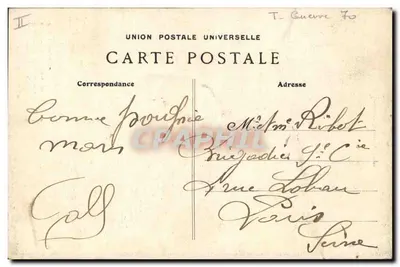 II
T. Guerre 70
UNION POSTALE UNIVERSELLE
CARTE POSTALE
Correspondance
Adresse
bonne
mars
Mr et Me Ribot
Brigadier Cie
rue Lobau
Paris
Seine